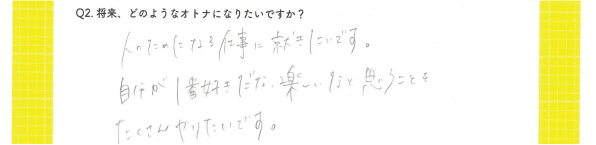 Q2. 将来、どのようなオトナになりたいですか？
人のためになる仕事に就きたいです。
自分が1番好きだな、楽しいなと思うことを
たくさんやりたいです。